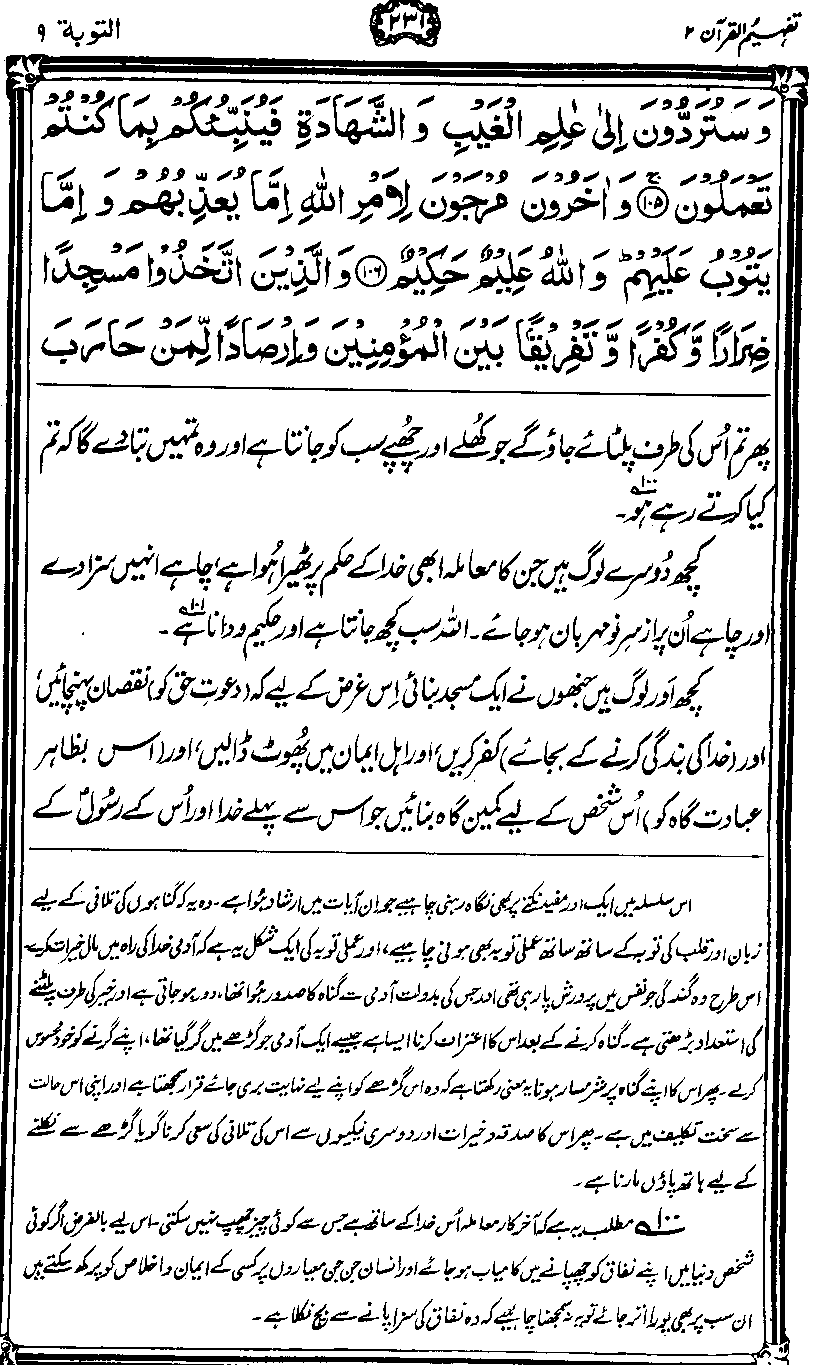 تفہیم القرآن ۲
۲۳۱
التوبة ۹
وَسَتُرَدُّوْنَ اِلٰى عٰلِمِ الْغَيْبِ وَ الشَّهَادَةِ فَيُنَبِّئُكُمْ بِمَا كُنْتُمْ
تَعْمَلُوْنَ ۚ﴿۱۰۵﴾ وَ اٰخَرُوْنَ مُرْجَوْنَ لِاَمْرِ اللّٰهِ اِمَّا يُعَذِّبُهُمْ وَ اِمَّا
يَتُوْبُ عَلَيْهِمْ ؕ وَ اللّٰهُ عَلِيْمٌ حَكِيْمٌ ﴿۱۰۶﴾ وَ الَّذِيْنَ اتَّخَذُوْا مَسْجِدًا
ضِرَارًا وَّ كُفْرًا وَّ تَفْرِيْقًۢا بَيْنَ الْمُؤْمِنِيْنَ وَ اِرْصَادًا لِّمَنْ حَارَبَ
پھر تم اُس کی طرف پلٹائے جاؤ گے جو کھُلے اور چھُپے سب کو جانتا ہے اور وہ تمہیں بتا دے گا کہ تم
کیا کرتے رہے ہو۱۰۰۔
کچھ دُوسرے لوگ ہیں جن کا معاملہ ابھی خدا کے حکم پر ٹھیرا ہُوا ہے، چاہے انہیں سزا دے
اور چاہے اُن پر از سرِ نو مہربان ہو جائے۔ اللہ سب کچھ جانتا ہے اور حکیم و دانا ہے۱۰۱۔
کچھ اور لوگ ہیں جنھوں نے ایک مسجد بنائی اِس غرض کے لیے کہ (دعوتِ حق کو) نقصان پہنچائیں،
اور (خدا کی بندگی کرنے کے بجائے) کفر کریں، اور اہلِ ایمان میں پھُوٹ ڈالیں، اور (اس بظاہر
عبادت گاہ کو) اُس شخص کے لیے کمین گاہ بنائیں جو اس سے پہلے خدا اور اُس کے رسُولؐ کے
اس سلسلہ میں ایک اور مفید نکتے پر بھی نگاہ رہنی چاہیے جو ان آیات میں ارشاد ہوا ہے۔ وہ یہ کہ گناہوں کی تلافی کے لیے
زبان اور قلب کی توبہ کے ساتھ ساتھ عملی توبہ بھی ہونی چاہیے، اور عملی توبہ کی ایک شکل یہ ہے کہ آدمی خدا کی راہ میں مال خیرات کرے۔
اس طرح وہ گندگی جو نفس میں پرورش پا رہی تھی اور جس کی بدولت آدمی سے گناہ کا صدور ہوا تھا، دور ہو جاتی ہے اور خیر کی طرف پلٹنے
کی استعداد بڑھتی ہے۔ گناہ کرنے کے بعد اس کا اعتراف کرنا ایسا ہے جیسے ایک آدمی جو گڑھے میں گر گیا تھا، اپنے گرنے کو خود محسوس
کرلے۔ پھر اس کا اپنے گناہ پر شرمسار ہونا یہ معنی رکھتا ہے کہ وہ اس گڑھے کو اپنے لیے نہایت بری جائے قرار سمجھتا ہے اور اپنی اس حالت
سے سخت تکلیف میں ہے۔ پھر اس کا صدقہ و خیرات اور دوسری نیکیوں سے اس کی تلافی کی سعی کرنا گویا گڑھے سے نکلنے
کے لیے ہاتھ پاؤں مارنا ہے۔
۱۰۰ مطلب یہ ہے کہ آخر کار معاملہ اُس خدا کے ساتھ ہے جس سے کوئی چیز چھپ نہیں سکتی۔ اس لیے بالفرض اگر کوئی
شخص دنیا میں اپنے نفاق کو چھپانے میں کامیاب ہو جائے اور انسان جن جن معیاروں پر کسی کے ایمان و اخلاص کو پرکھ سکتے ہیں
ان سب پر بھی پورا اتر جائے تو یہ نہ سمجھنا چاہیے کہ وہ نفاق کی سزا پانے سے بچ نکلا ہے۔